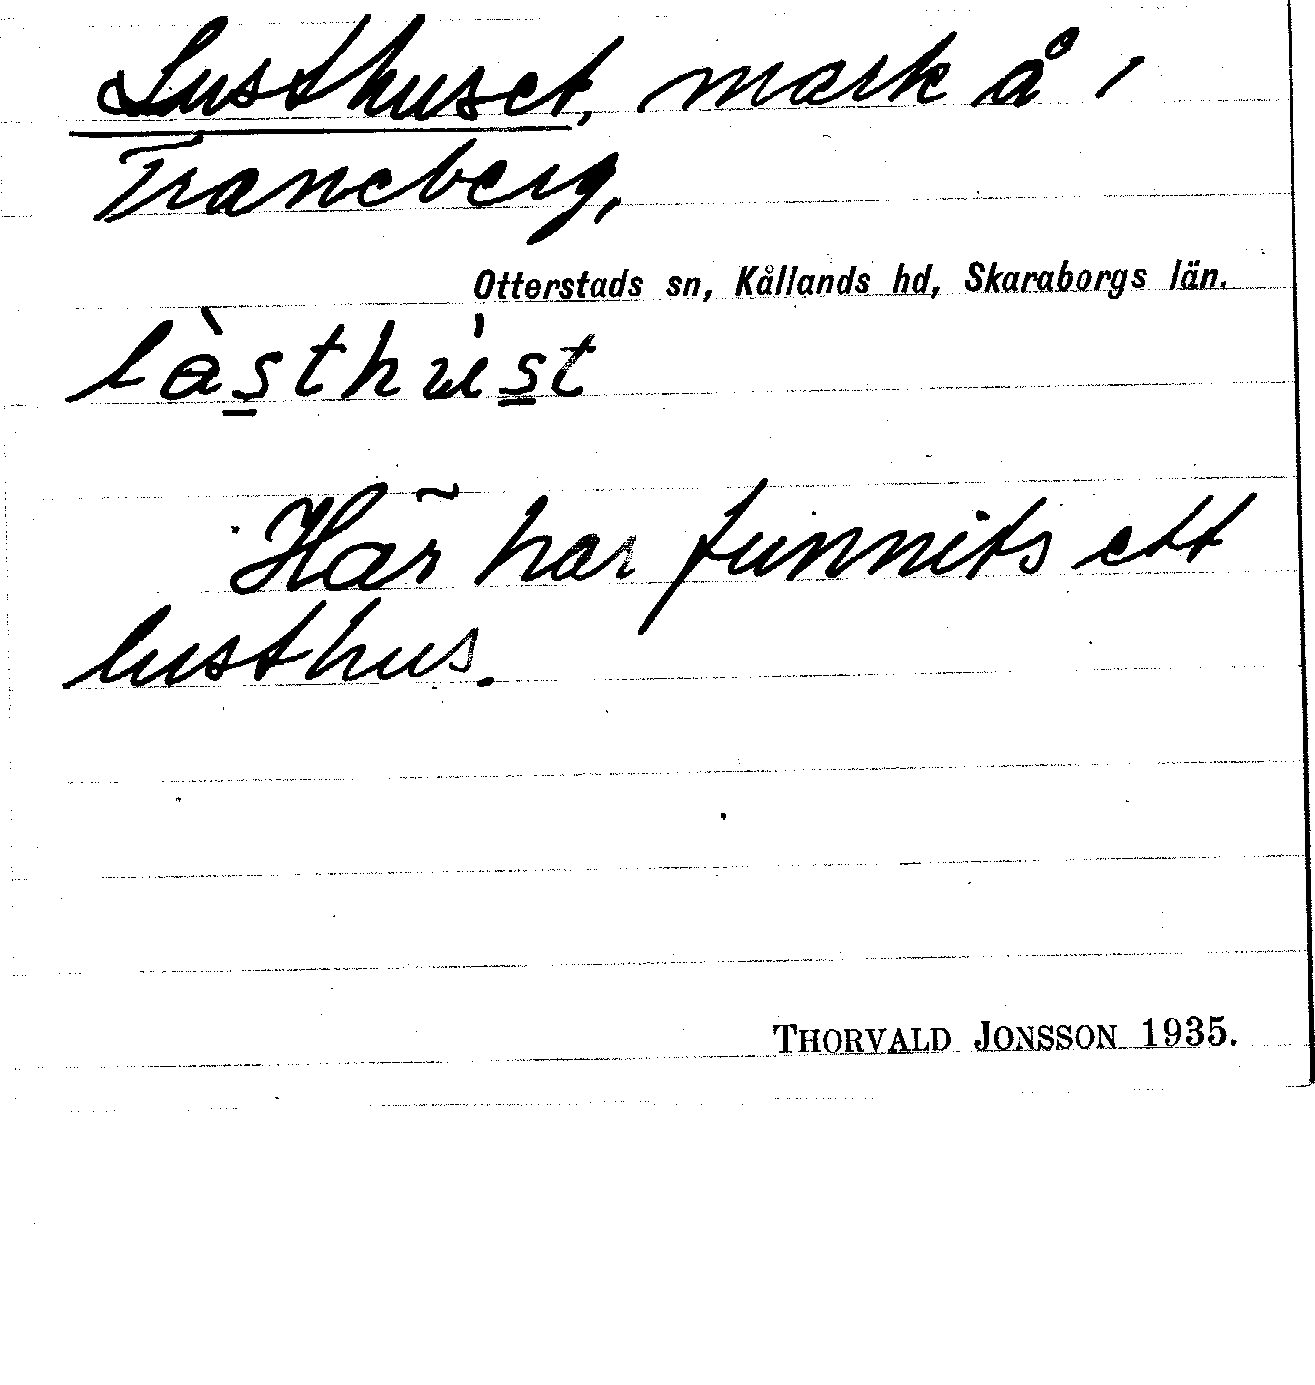 Lusthuset, mark å 1
Traneberg,
Otterstads sn, Kållands hd, Skaraborgs län.
Här har funnits ett
lusthus.
THORVALD JONSSON 1935.